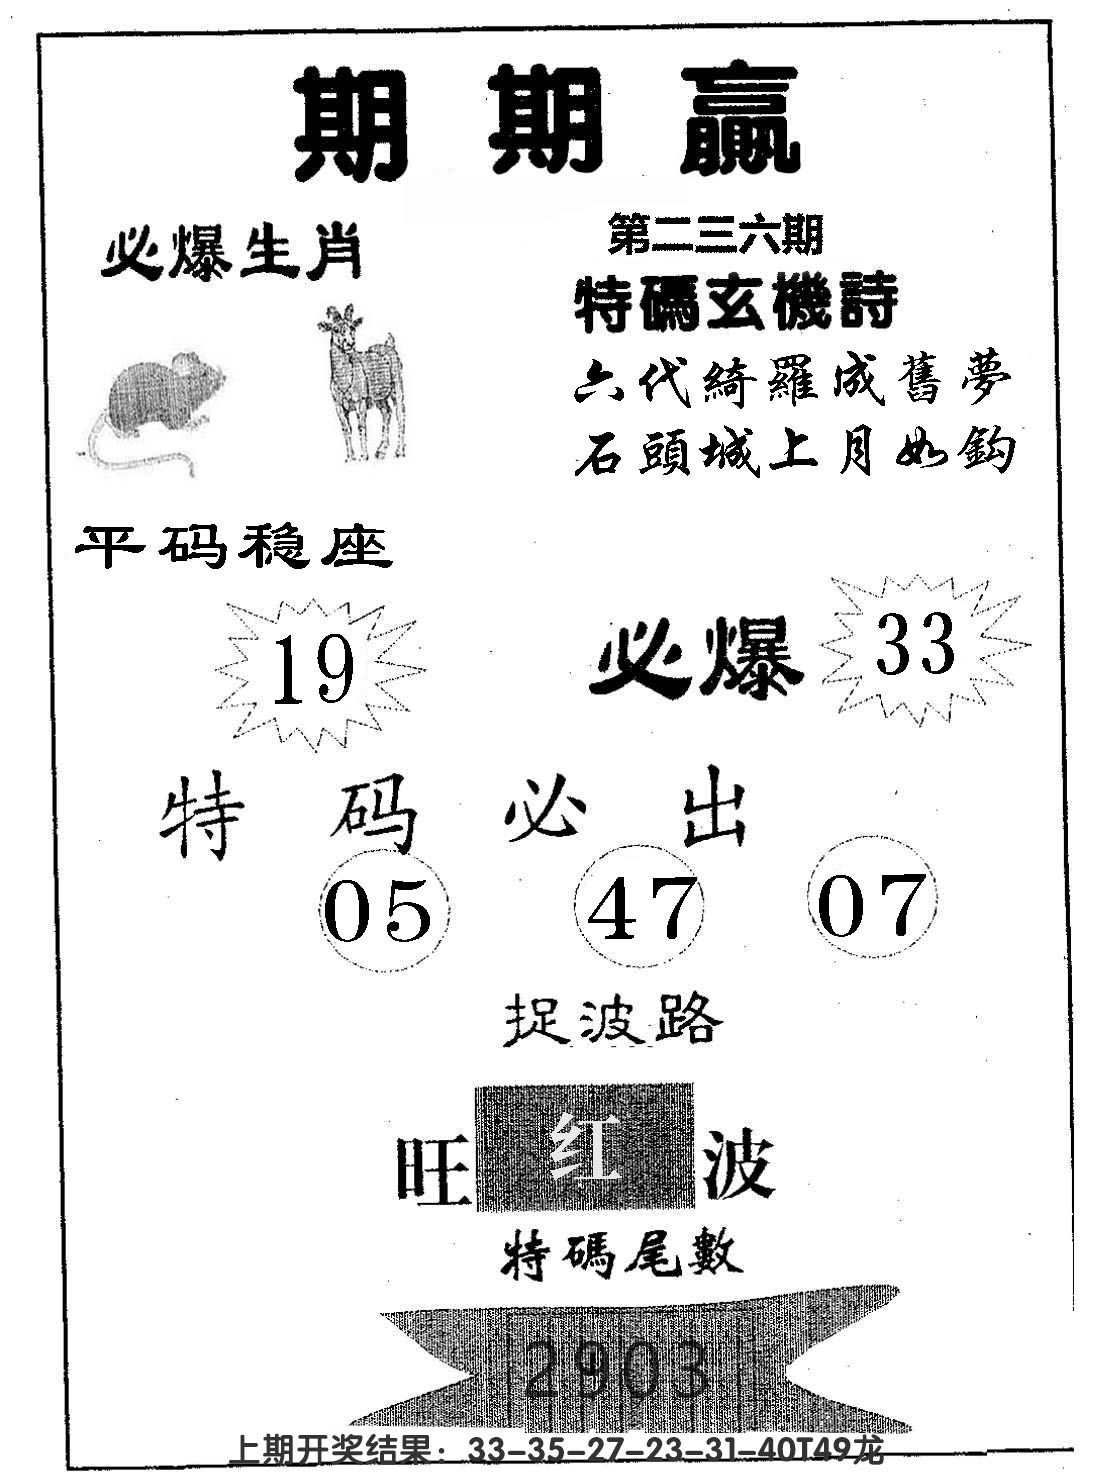 期期贏
必爆生肖
第二三六期
特碼玄機詩
六代綺羅成舊夢
石頭城上月如鈎
平码稳座
19
必爆
33
特码必出
05 47 07
捉波路
旺红波
特碼尾數
2903
上期开奖结果：33-35-27-23-31-40T49龙